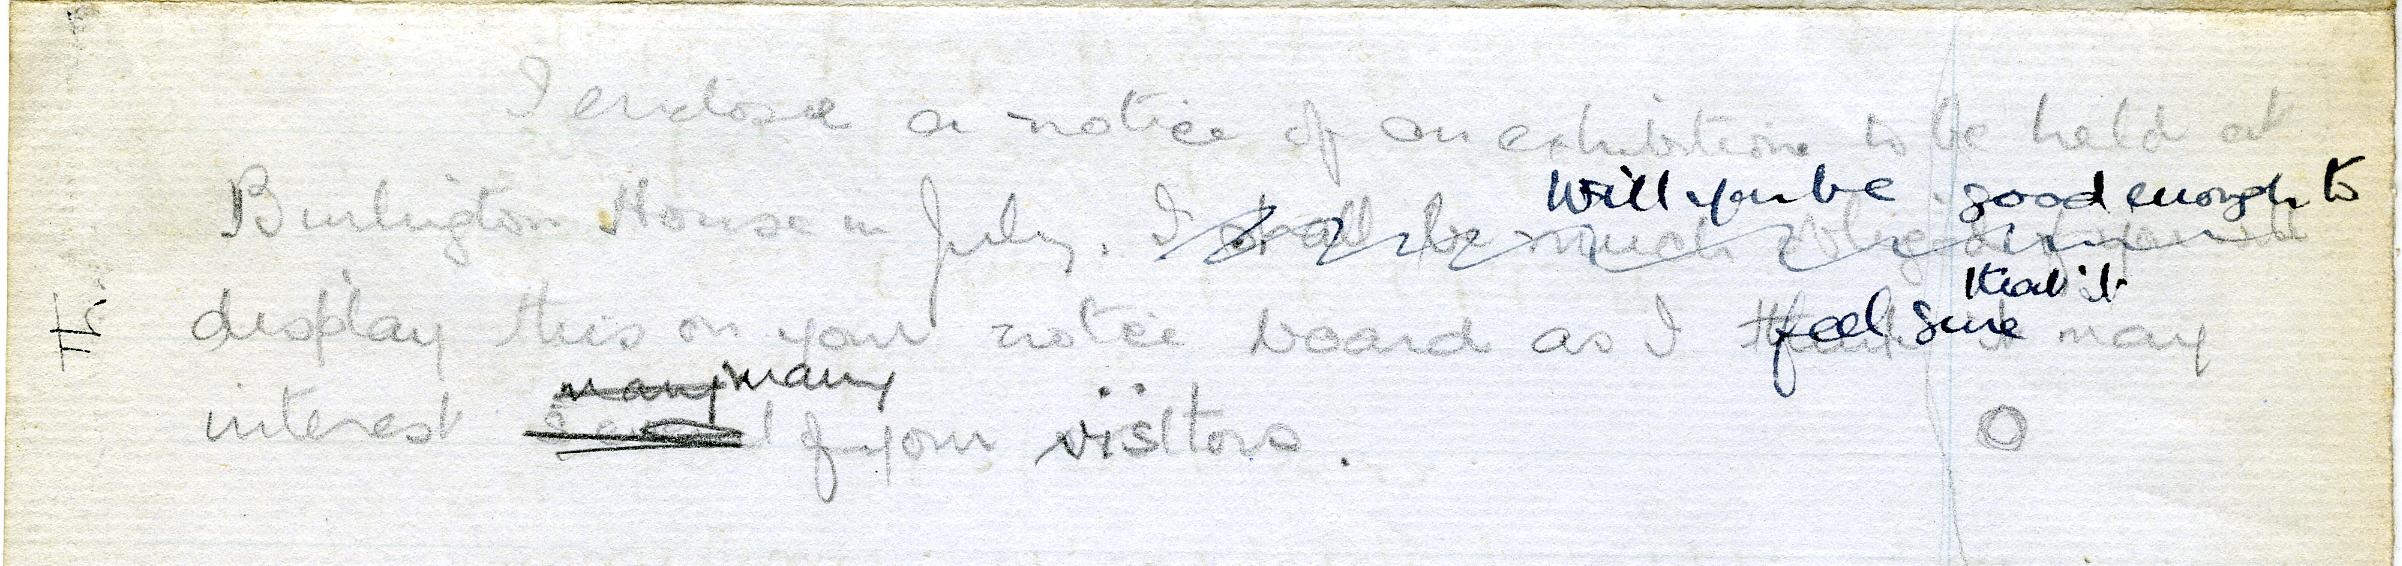 I enclose a notice of an exhibition to be held at
Will you be good enough to
Burlington House in July. I shall be much obliged if you will
that it
display this on your notice board as I think feel sure it may
many many
interest several of your visitors.